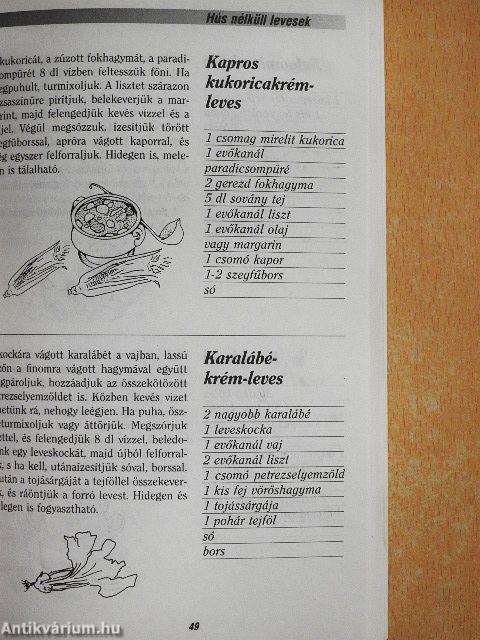 Hús nélküli levesek
kukoricát, a zúzott fokhagymát, a paradi-
csompürét 8 dl vízben feltesszük főni. Ha
egpuhult, turmixoljuk. A lisztet szárazon
zsaszínűre pirítjuk, belekeverjük a mar-
rint, majd felengedjük kevés vízzel és a
jjel. Végül megsózzuk, ízesítjük törött
egfűborssal, apróra vágott kaporral, és
ég egyszer felforraljuk. Hidegen is, mele-
en is tálalható.
Kapros
kukoricakrém-
leves
1 csomag mirelit kukorica
1 evőkanál
paradicsompüré
2 gerezd fokhagyma
5 dl sovány tej
1 evőkanál liszt
1 evőkanál olaj
vagy margarin
1 csomó kapor
1-2 szegfűbors
só
kockára vágott karalábét a vajban, lassú
zön a finomra vágott hagymával együtt
gpároljuk, hozzáadjuk az összekötözött
etrezselyemzöldet is. Közben kevés vizet
hetünk rá, nehogy leégjen. Ha puha, ösz-
eturmixoljuk vagy áttörjük. Megszórjuk
zttel, és felengedjük 8 dl vízzel, beledo-
nk egy leveskockát, majd újból felforral-
k, s ha kell, utánaízesítjük sóval, borssal.
után a tojássárgáját a tejföllel összekever-
k, és ráöntjük a forró levest. Hidegen és
elegen is fogyasztható.
Karalábé-
krém-leves
2 nagyobb karalábé
1 leveskocka
1 evőkanál vaj
2 evőkanál liszt
1 csomó petrezselyemzöld
1 kis fej vöröshagyma
1 tojássárgája
1 pohár tejföl
só
bors
49
Antikvárium.hu